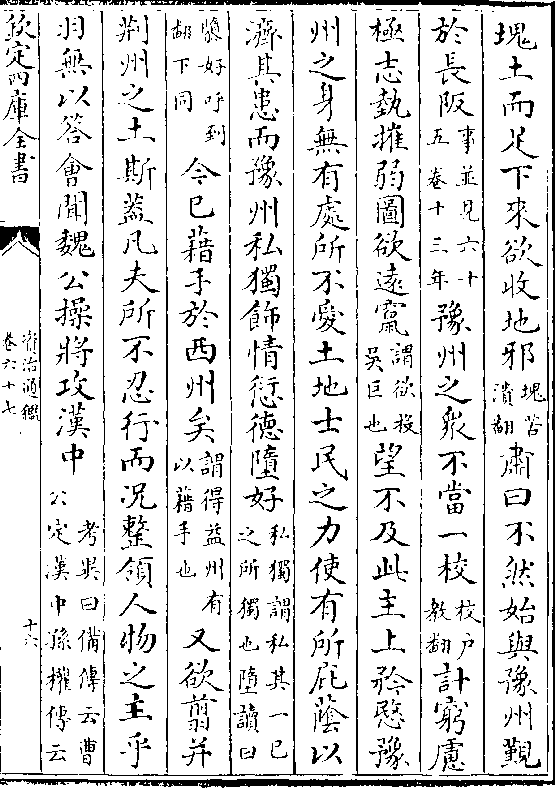 塊土而足下來欲收地邪塊苦潰翻肅曰不然始與豫州覲
於長阪事並見六十五卷十三年豫州之衆不當一校校戶教翻計窮慮
極志埶摧弱圖欲遠竄謂欲投吳巨也望不及此主上矜愍豫
州之身無有處所不愛土地士民之力使有所庇䕃以
濟其患而豫州私獨飾情愆德墮好私獨謂私其一已之所獨也墮讀曰
隳好呼到翻下同今已藉手於西州矣謂得益州有以藉手也又欲翦并
荆州之土斯葢凡夫所不忍行而况整領人物之主乎
羽無以答會聞魏公操將攻漢中考異曰備傳云曹公定漢中孫權傳云
欽定四庫全書
資治通鑑
卷六十七
十六